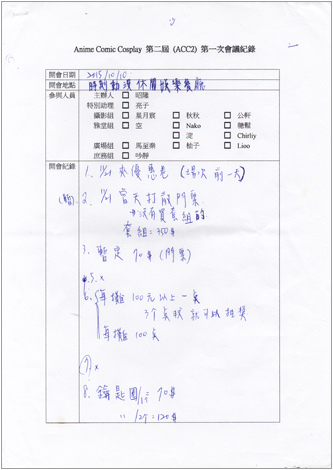 Anime Comic Cosplay 第二屆 (ACC2) 第一次會議紀錄
開會日期 2015/10/10.
開會地點 時刻動漫休閒娛樂餐廳
參與人員 主辦人 □ 昭隆
特別助理 □ 亮子
攝影組 □ 星月宸 □ 秋秋 □ 公軒
雅堂組 □ 空 □ Nako □
□ 淀 □ Chirliy
廣場組 □ 馬至樂 □ 柚子 □ Lioo
庶務組 □ 吟靜
開會紀錄
1. 優惠卷 (場次前一天)
2. 當天打敲門票
→沒有買套組的
套組=350$
3. 暫定 70$ (門票)
5. x
6. 每攤 100元以上一貞
3个貞 就可以抽獎
每攤 100貞
7. x
8. 鑰匙圈/1个 = 70$
〃 /2个=120$